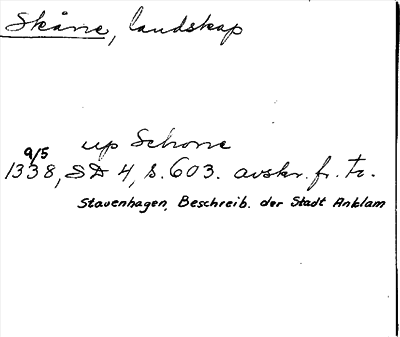 Skåne, landskap
up Schone
9/5
1338, SD 4, s. 603. avskr. fr. tr.
Stavenhagen, Beschreib. der Stadt Anklam